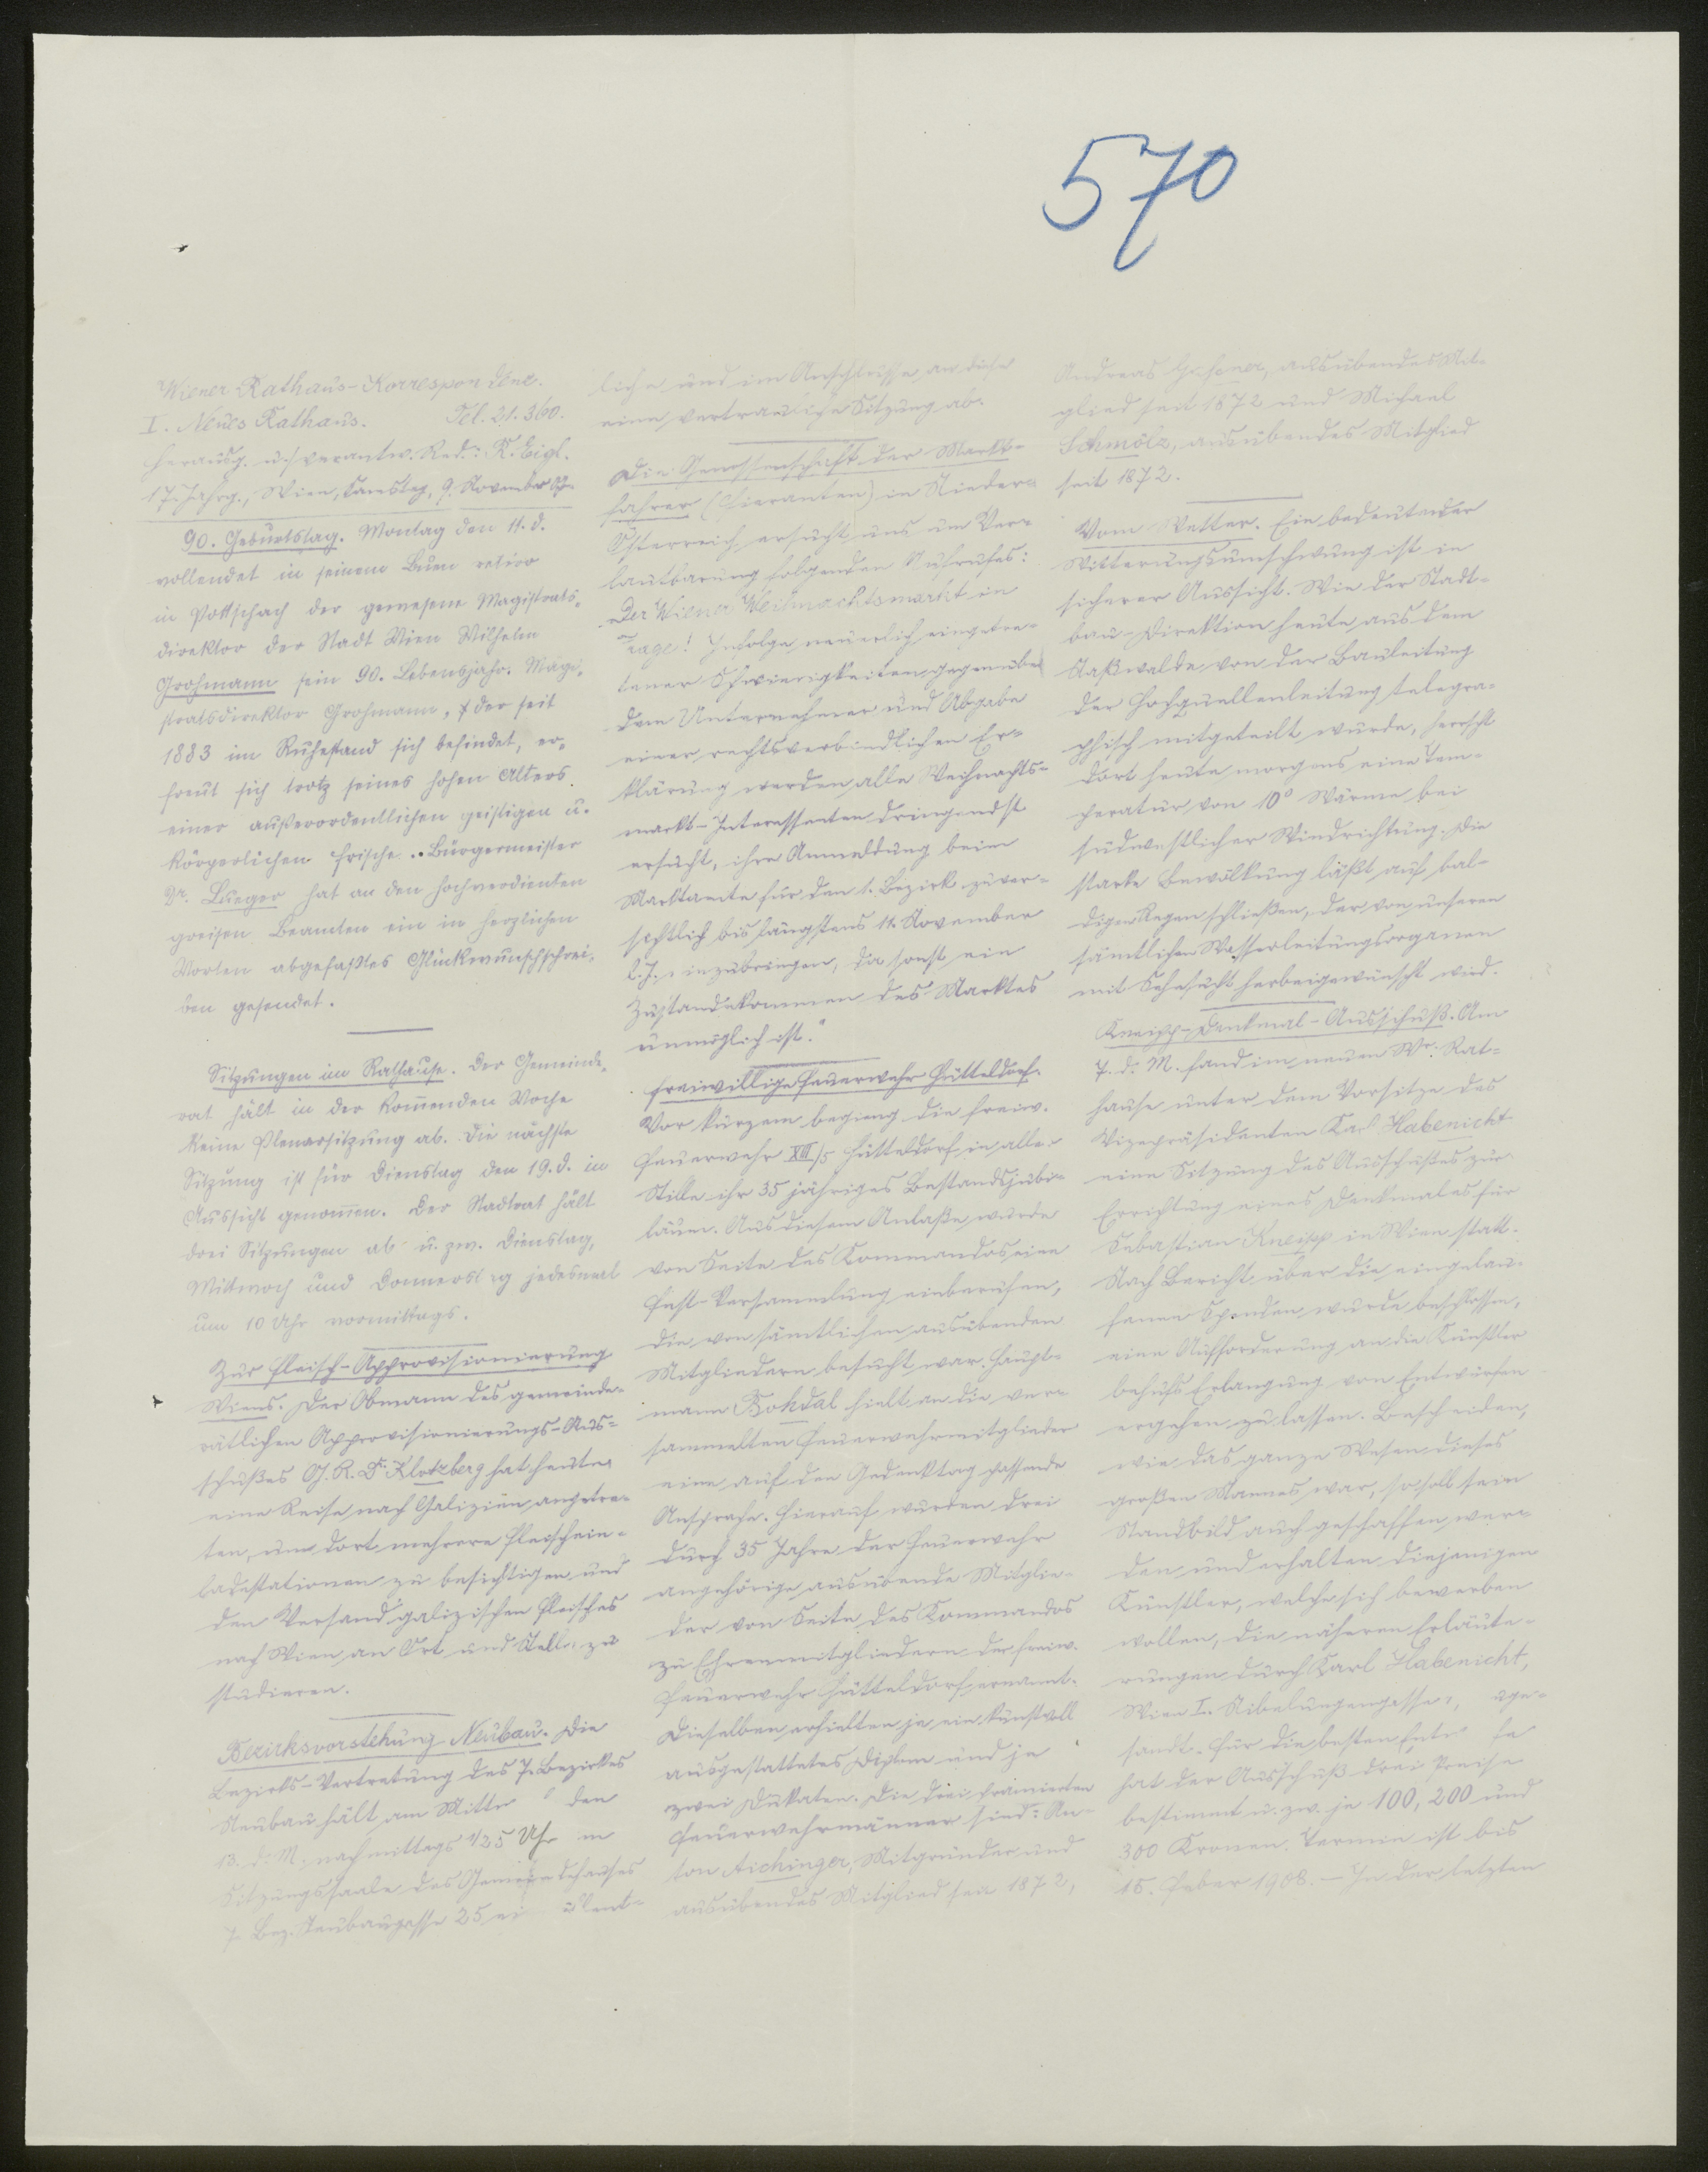 570
Wiener Rathaus-Korrespondenz.
I. Neues Rathaus. Tel. 21.360.
Herausg. u. verantw. Red.: R. Eigl.
17. Jahrg., Wien, Samstag, 9. November
90. Geburtstag. Montag den 11. d.
vollendet in seinem Buen retiro
in Pottschach der gewesene Magistrats-
direktor der Stadt Wien Wilhelm
Grohmann sein 90. Lebensjahr. Magi-
stratsdirektor Grohmann, der seit
1883 im Ruhestand sich befindet, er-
freut sich trotz seines hohen Alters
einer außerordentlichen geistigen u.
körperlichen Frische. Bürgermeister
Dr. Lueger hat an den hochverdienten
greisen Beamten ein in herzlichen
Worten abgefaßtes Glückwunschschrei-
ben gesendet.
Sitzungen im Rathause. Der Gemeinde-
rat hält in der kommenden Woche
keine Plenarsitzung ab. Die nächste
Sitzung ist für Dienstag den 19. d. in
Aussicht genommen. Der Stadtrat hält
drei Sitzungen ab u. zw. Dienstag,
Mittwoch und Donnerstag jedesmal
um 10 Uhr vormittags.
Zur Fleisch-Approvisionierung
Wiens. Der Obmann des gemeinde-
rätlichen Approvisionierungs-Aus-
schußes G. R. Dr. Klotzberg hat heute
eine Reise nach Galizien angetre-
ten, um dort mehrere Fleischein-
ladestationen zu besichtigen und
den Versand galizischen Fleisches
nach Wien an Ort und Stelle zu
studieren.
Bezirksvorstehung Neubau. Die
Bezirks-Vertretung des 7. Bezirkes
Neubau hält am den
13. d. M. nachmittags 1/2 5 Uhr im
Sitzungssaale des Gemeindehauses
7. Bez. Neubaugasse 25 öffent-
liche und im Anschlusse an diese
eine vertrauliche Sitzung ab.
Die Genossenschaft der Markt-
fahrer (Fieranten) in Nieder-
Österreich ersucht uns um Ver-
lautbarung folgenden Aufrufes:
Der Wiener Weihnachtsmarkt in
Frage! Infolge neuerlich eingetre-
tener Schwierigkeiten gegenüber
dem Unternehmer und Abgabe
einer rechtsverbindlichen Er-
klärung werden alle Weihnachts-
markt-Interessenten dringendst
ersucht, ihre Anmeldung beim
Marktamte für den 1. Bezirk zuver-
sichtlich bis längstens 11. November
l. J. einzubringen, da sonst ein
Zustandekommen des Marktes
unmöglich ist."
Freiwillige Feuerwehr Hütteldorf.
Vor kurzem beging die freiw.
Feuerwehr XIII/5 Hütteldorf in aller
Stille ihr 35 jähriges Bestandsjubi-
läum. Aus diesem Anlaße wurde
von Seite des Kommandos eine
Fest-Versammlung einberufen,
die von sämtlichen ausübenden
Mitgliedern besucht war. Haupt-
mann Bohdal hielt an die ver-
sammelten Feuerwehrmitglieder
eine auf den Gedenktag passende
Ansprache. Hierauf wurden drei
durch 35 Jahre der Feuerwehr
angehörige ausübende Mitglie-
der von Seite des Kommandos
zu Ehrenmitgliedern der freiw.
Feuerwehr Hütteldorf ernannt.
Dieselben erhielten je ein kunstvoll
ausgestattetes Diplom und je
zwei Dukaten. Die drei prämierten
Feuerwehrmänner sind: An-
ton Aichinger, Mitgründer und
ausübendes Mitglied seit 1872,
Andreas ausübendes Mit-
glied seit 1872 und Michael
Schmölz, ausübendes Mitglied
seit 1872.
Vom Wetter. Ein bedeutender
Witterungsumschwung ist in
sicherer Aussicht. Wie der Stadt-
bau-Direktion heute aus dem
Naßwalde von der Bauleitung
der Hochquellenleitung telegra-
phisch mitgeteilt wurde, herrscht
dort heute morgens eine Tem-
peratur von 10° Wärme bei
südwestlicher Windrichtung. Die
starke Bewölkung läßt auf bal-
digen Regen schließen, der von unseren
sämtlichen Wasserleitungsorganen
mit Sehnsucht herbeigewünscht wird.
Kneipp-Denkmal-Ausschuß. Am
7. d. M. fand im neuen Wr. Rat-
hause unter dem Vorsitze des
Vizepräsidenten Karl Habenicht
eine Sitzung des Ausschußes zur
Errichtung eines Denkmales für
Sebastian Kneipp in Wien statt.
Nach Bericht über die eingelau-
fenen Spenden wurde beschlossen,
eine Aufforderung an die Künstler
behufs Erlangung von Entwürfen
ergehen zu lassen. Bescheiden,
wie das ganze Wesen dieses
großen Mannes war, so soll sein
Standbild auch geschaffen wer-
den und erhalten diejenigen
Künstler, welche sich bewerben
wollen, die näheren Erläute-
rungen durch Karl Habenicht,
Wien I. Nibelungengasse
sandt. Für die besten
hat der Ausschuß drei Preise
bestimmt u. zw. je 100, 200 und
300 Kronen. Termin ist bis
15. Feber 1908. — In der letzten